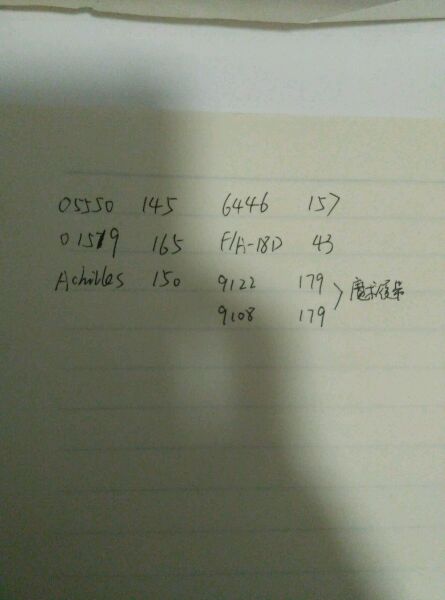 05550 145 6446 157
01519 165 F/A-18D 43
Achilles 150 9122 179
9108 179
魔术后呆